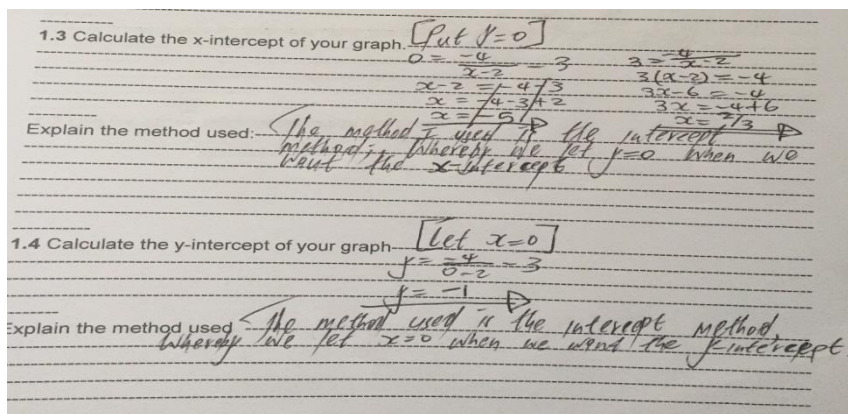 1.3 Calculate the x-intercept of your graph. [Put y=0]
0 = -4/(x-2) - 3
3 = -4/(x-2)
x-2 = -4/3
3(x-2) = -4
x = -4-3+2
3x-6 = -4
x = -5
3x = -4+6
x = 2/3
Explain the method used: The method I used is the intercept
method; Whereby we let y=0 when we
want the x-intercept
1.4 Calculate the y-intercept of your graph [Let x=0]
y = -4/(0-2) - 3
y = -1
Explain the method used The method used is the intercept method,
Whereby we let x=0 when we want the y-intercept